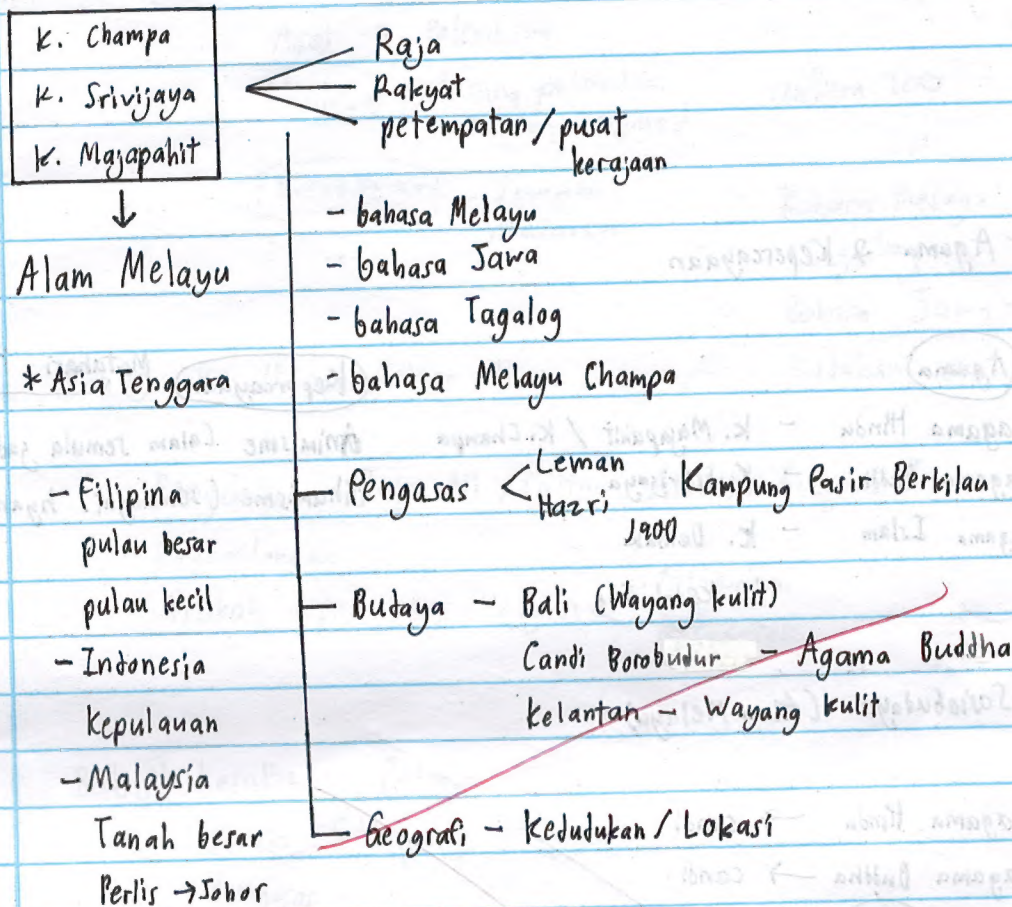 K. Champa
K. Srivijaya
K. Majapahit
↓
Alam Melayu
* Asia Tenggara
- Filipina
pulau besar
pulau kecil
- Indonesia
kepulauan
- Malaysia
Tanah besar
Perlis → Johor
Raja
Rakyat
petempatan / pusat
kerajaan
- bahasa Melayu
- bahasa Jawa
- bahasa Tagalog
- bahasa Melayu Champa
Pengasas < Leman Kampung Pasir Berkilau
Hazri
1900
Budaya - Bali (Wayang kulit)
Candi Borobudur - Agama Buddha
Kelantan - Wayang kulit
Geografi - Kedudukan / Lokasi